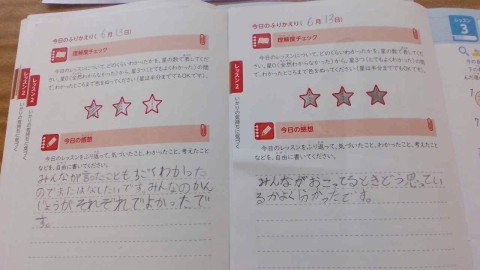 今日のふりかえり（6月13日）
理解度チェック
今日のレッスンについて、どのくらいわかったかを、星の数で表してくだ
さい。星0（全然わからなかった）から、星3つ（とてもよくわかった）の間
で、わかったところまで色をぬってください（星は半分まででもOKです）。
今日の感想
今日のレッスンをふり返って、気づいたこと、わかったこと、考えたこと
などを、自由に書いてください。
みんなが言ったことも、すごくわかった
のでまたはなしたいです。みんなのかん
じょうが、それぞれでよかったで
す。
レッスン2
いかりの気持ちに気づく
今日のふりかえり（6月13日）
理解度チェック
今日のレッスンについて、どのくらいわかったかを、星の数で表してくだ
さい。星0（全然わからなかった）から、星3つ（とてもよくわかった）の間
で、わかったところまで色をぬってください（星は半分まででもOKです）。
今日の感想
今日のレッスンをふり返って、気づいたこと、わかったこと、考えたこと
などを、自由に書いてください。
みんながおこってるときどう思ってい
るかよく分かったです。
レッスン2
いかりの気持ちに気づく
レッスン
3